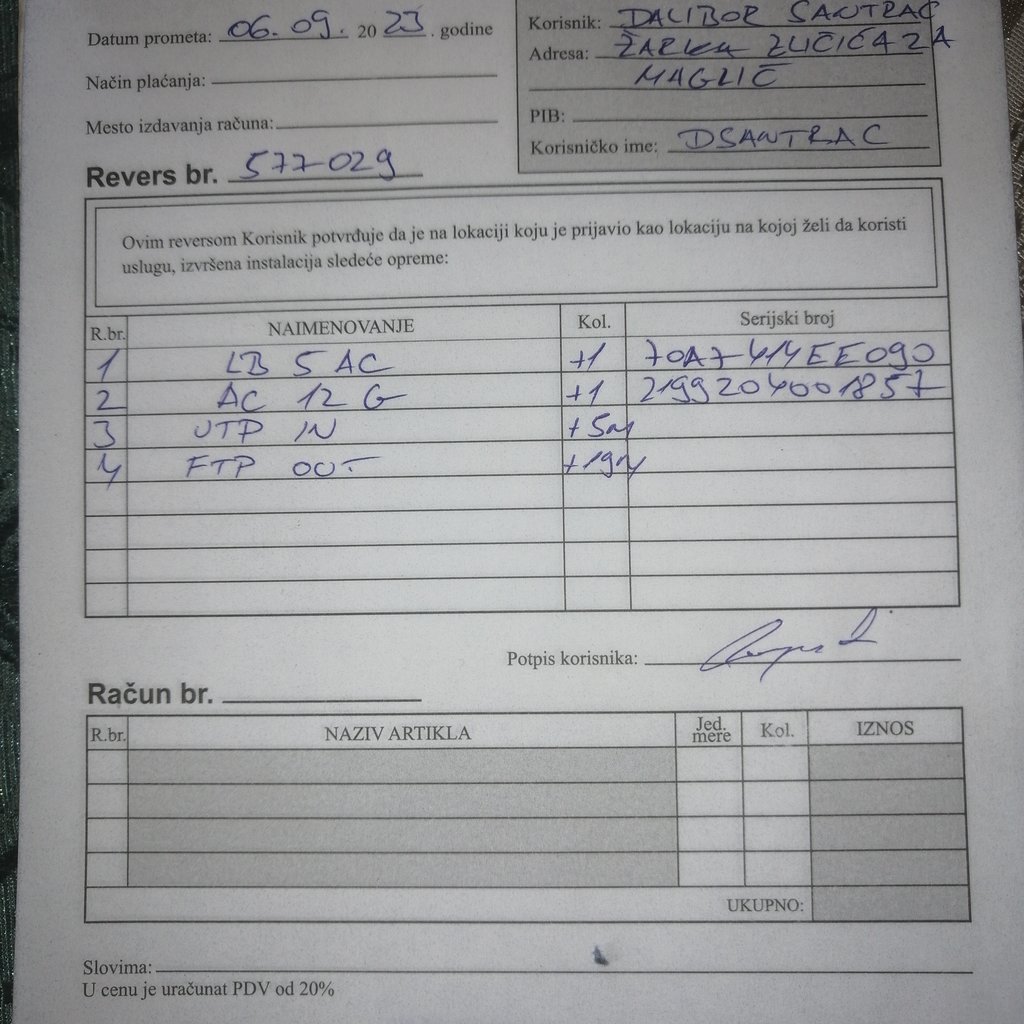 Datum prometa: 06.09. 2023. godine
Način plaćanja:
Mesto izdavanja računa:
Revers br. 577-029
Korisnik: DALIBOR SANTRAC
Adresa: ŽARKA ZUČIĆA 2A
MAGLIČ
PIB:
Korisničko ime: DSANTRAC
Ovim reversom Korisnik potvrđuje da je na lokaciji koju je prijavio kao lokaciju na kojoj želi da koristi
uslugu, izvršena instalacija sledeće opreme:
R.br. NAIMENOVANJE Kol. Serijski broj
1 LB 5 AC +1 70A7414EE090
2 AC 12 G +1 2199204001857
3 UTP IN +5m
4 FTP OUT +19m
Potpis korisnika:
Račun br.
R.br. NAZIV ARTIKLA Jed. mere Kol. IZNOS
UKUPNO:
Slovima:
U cenu je uračunat PDV od 20%